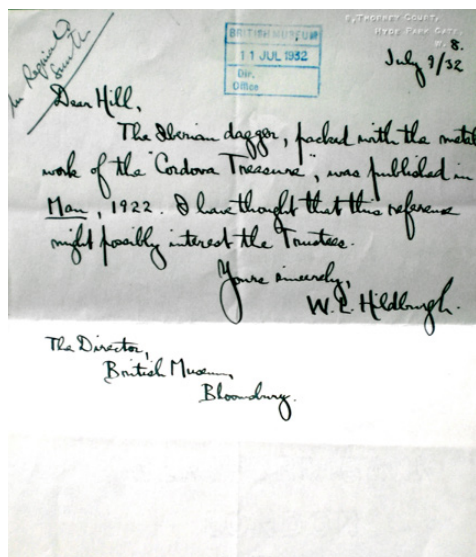 8, THORNEY COURT,
HYDE PARK GATE,
W. 8.
Mr Reginald
Smith
BRITISH MUSEUM
11 JUL 1932
Dir.
Office
July 9/32
Dear Hill,
The Iberian dagger, packed with the metal
work of the "Cordova Treasure", was published in
Man, 1922. I have thought that this reference
might possibly interest the Trustees.
Yours sincerely,
W. L. Hildburgh.
The Director,
British Museum,
Bloomsbury.